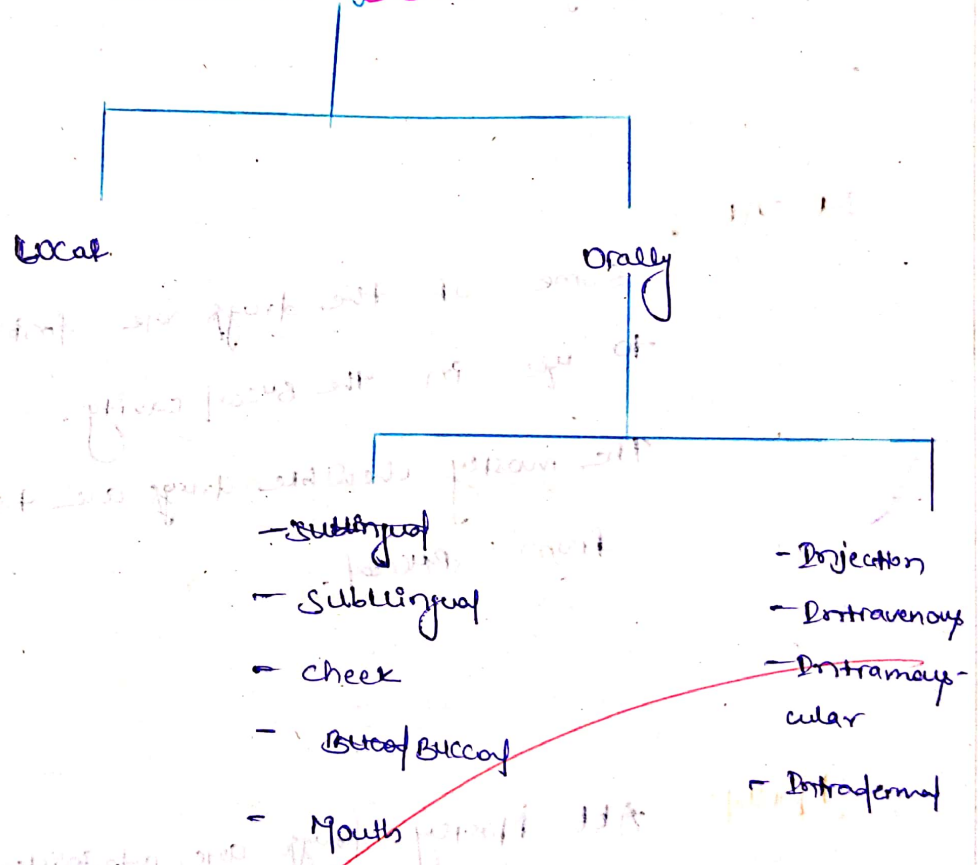 Local.
Orally
- Sublingual
- Sublingual
- cheek
- Bucal/Buccal
- Mouth
- Injection
- Intravenous
- Intramous-
cular
- Intradermal